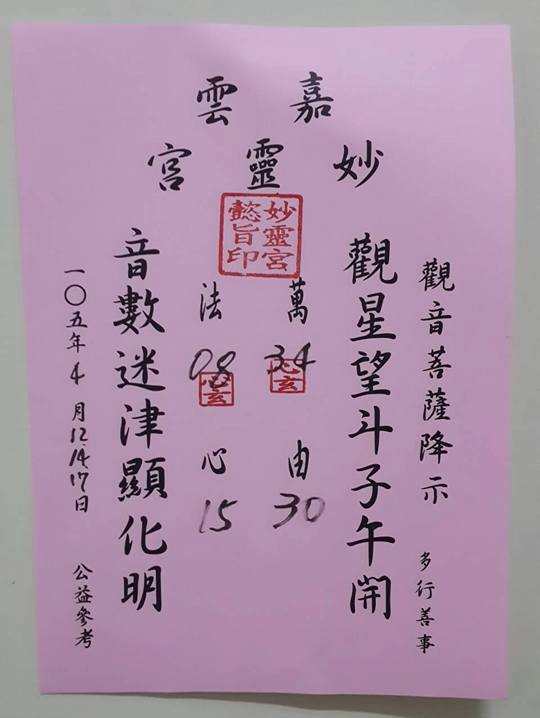 嘉雲
妙靈宮
觀音菩薩降示 多行善事
觀星望斗子午開
妙靈宮
懿旨印
萬 34 由 30
心玄
法 08 心 15
心玄
音數迷津顯化明
一〇五年4月12.14.17日 公益參考